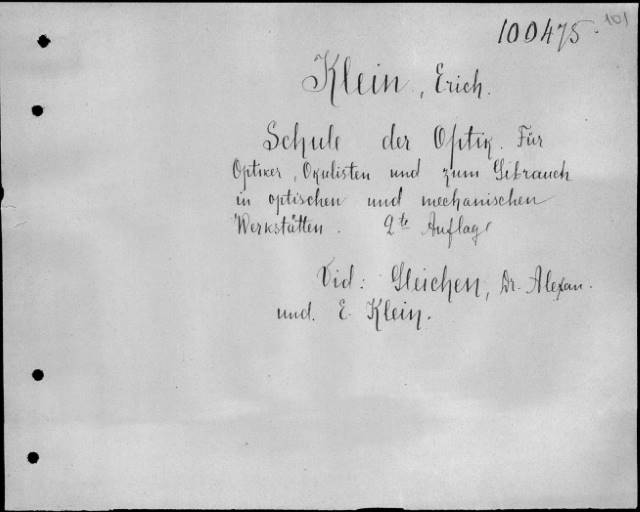 101
100475.
Klein, Erich.
Schule der Optik. Für
Optiker, Okulisten und zum Gebrauch
in optischen und mechanischen
Werkstätten. 2te Auflage
Vid: Gleichen, Dr. Alexan.
und. E. Klein.